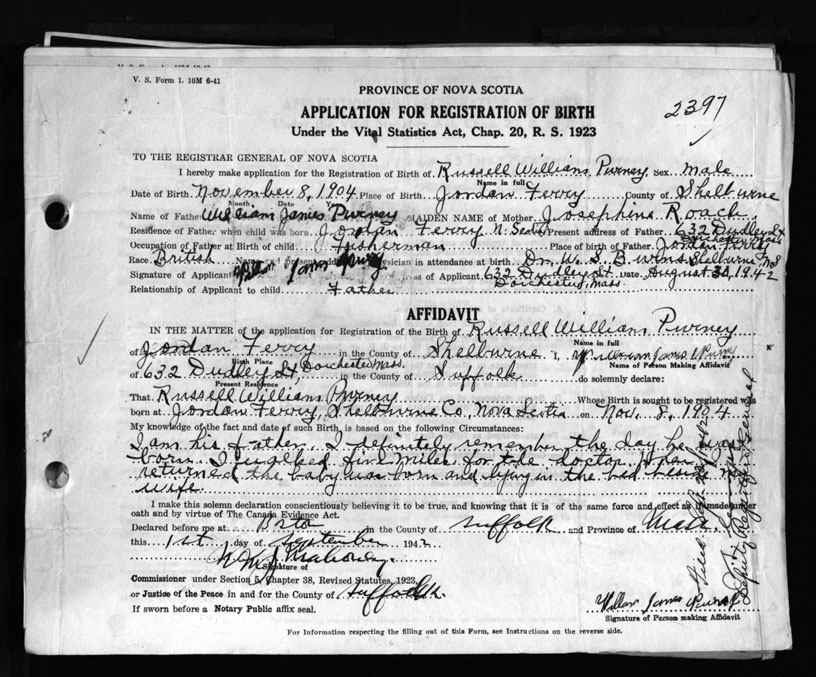 V. S. Form 1. 10M 6-41
PROVINCE OF NOVA SCOTIA
APPLICATION FOR REGISTRATION OF BIRTH
Under the Vital Statistics Act, Chap. 20, R. S. 1923
2397
TO THE REGISTRAR GENERAL OF NOVA SCOTIA
I hereby make application for the Registration of Birth of Russell William Purney Sex Male
Name in full
Date of Birth November 8, 1904 Place of Birth Jordan Ferry County of Shelburne
Month Date
Name of Father William James Purney MAIDEN NAME of Mother Josephine Roach
Residence of Father when child was born Jordan Ferry N. Scotia Present address of Father 632 Dudley St Dorchester Mass
Occupation of Father at Birth of child Fisherman Place of birth of Father Jordan Ferry
Race British physician in attendance at birth Dr. W. S. Burns Shelburne N.S
Signature of Applicant William James Purney Address of Applicant 632 Dudley St. Date August 30, 1942
Dorchester, Mass.
Relationship of Applicant to child Father
AFFIDAVIT
IN THE MATTER of the application for Registration of the Birth of Russell William Purney
Name in full
of Jordan Ferry in the County of Shelburne I, William James Purney
Birth Place Name of Person Making Affidavit
of 632 Dudley St Dorchester Mass. in the County of Suffolk do solemnly declare:
Present Residence
That Russell William Purney Whose Birth is sought to be registered was
born at Jordan Ferry, Shelburne Co, Nova Scotia on Nov. 8, 1904
My knowledge of the fact and date of such Birth is based on the following Circumstances:
I am his father. I definitely remember the day he was
born. I walked five miles for the doctor, when I
returned the baby was born and lying in the bed beside my
wife.
I make this solemn declaration conscientiously believing it to be true, and knowing that it is of the same force and effect as if made under
oath and by virtue of The Canada Evidence Act.
Declared before me at Boston in the County of Suffolk and Province of Mass.
this 1st day of September 1942
Mahoney
Signature of
Commissioner under Section 5, Chapter 38, Revised Statutes, 1923,
or Justice of the Peace in and for the County of Suffolk
If sworn before a Notary Public affix seal.
William James Purney
Signature of Person making Affidavit
For Information respecting the filling out of this Form, see Instructions on the reverse side.
Deputy Registrar General